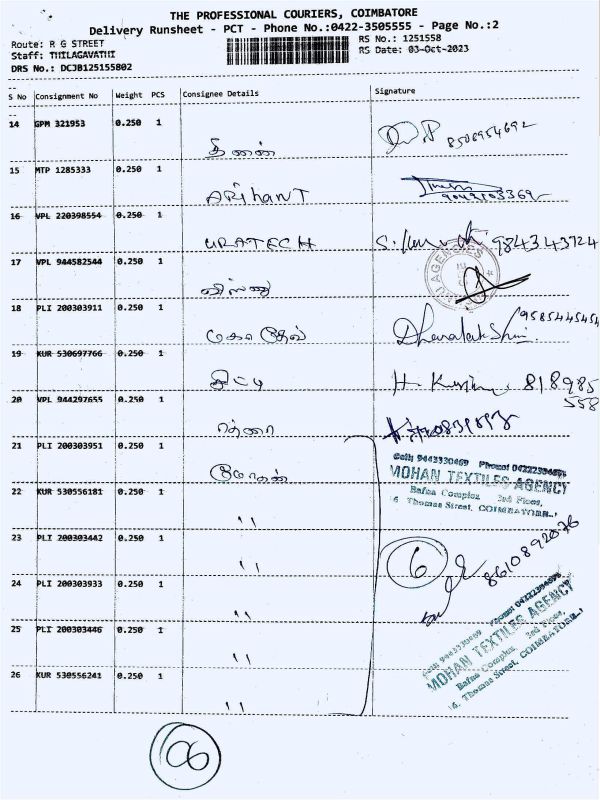 THE PROFESSIONAL COURIERS, COIMBATORE
Delivery Runsheet - PCT - Phone No.:0422-3505555 - Page No.:2
Route: R G STREET
RS No.: 1251558
Staff: THILAGAVATHI
RS Date: 03-Oct-2023
DRS No.: DCJB125155802
S No Consignment No Weight PCS Consignee Details Signature
14 GPM 321953 0.250 1
8506954692
15 MTP 1285333 0.250 1
ARihANT
16 VPL 220398554 0.250 1
URATECH
984343724
17 VPL 944582544 0.250 1
விஸ்ணு
AGENCIES
18 PLI 200303911 0.250 1
9585445454
19 KUR 530697766 0.250 1
H. 818985
558
20 VPL 944297655 0.250 1
21 PLI 200303951 0.250 1
மோகன்
Cell: 9443330469 Phone: 04222394696
MOHAN TEXTILES AGENCY
Bafna Complex 3rd Floor,
16, Thomas Street, COIMBATORE-1
22 KUR 530556181 0.250 1
"
23 PLI 200303442 0.250 1
"
6
8610892076
24 PLI 200303933 0.250 1
"
25 PLI 200303446 0.250 1
"
Cell: 9443330469 Phone: 04222394696
MOHAN TEXTILES AGENCY
Bafna Complex 3rd Floor,
16, Thomas Street, COIMBATORE-1
26 KUR 530556241 0.250 1
"
06